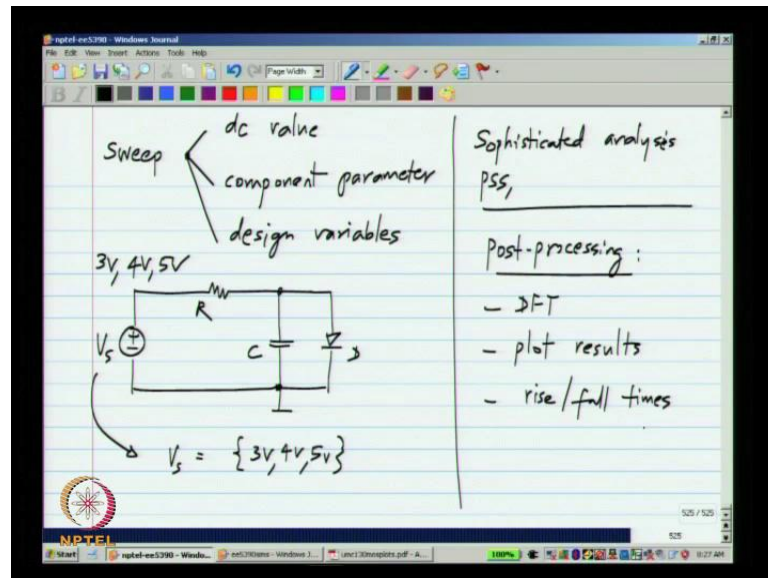 nptel-ee5390 - Windows Journal
File Edit View Insert Actions Tools Help
Page Width
B I
Sweep
dc value
component parameter
design variables
3V, 4V, 5V
R
Vs
C
D
Vs = {3V, 4V, 5V}
Sophisticated analysis
PSS,
Post-processing :
- DFT
- plot results
- rise/fall times
NPTEL
525 / 525
525
Start
nptel-ee5390 - Windo...
ee5390ams - Windows J...
umc130mosplots.pdf - A...
100%
8:27 AM